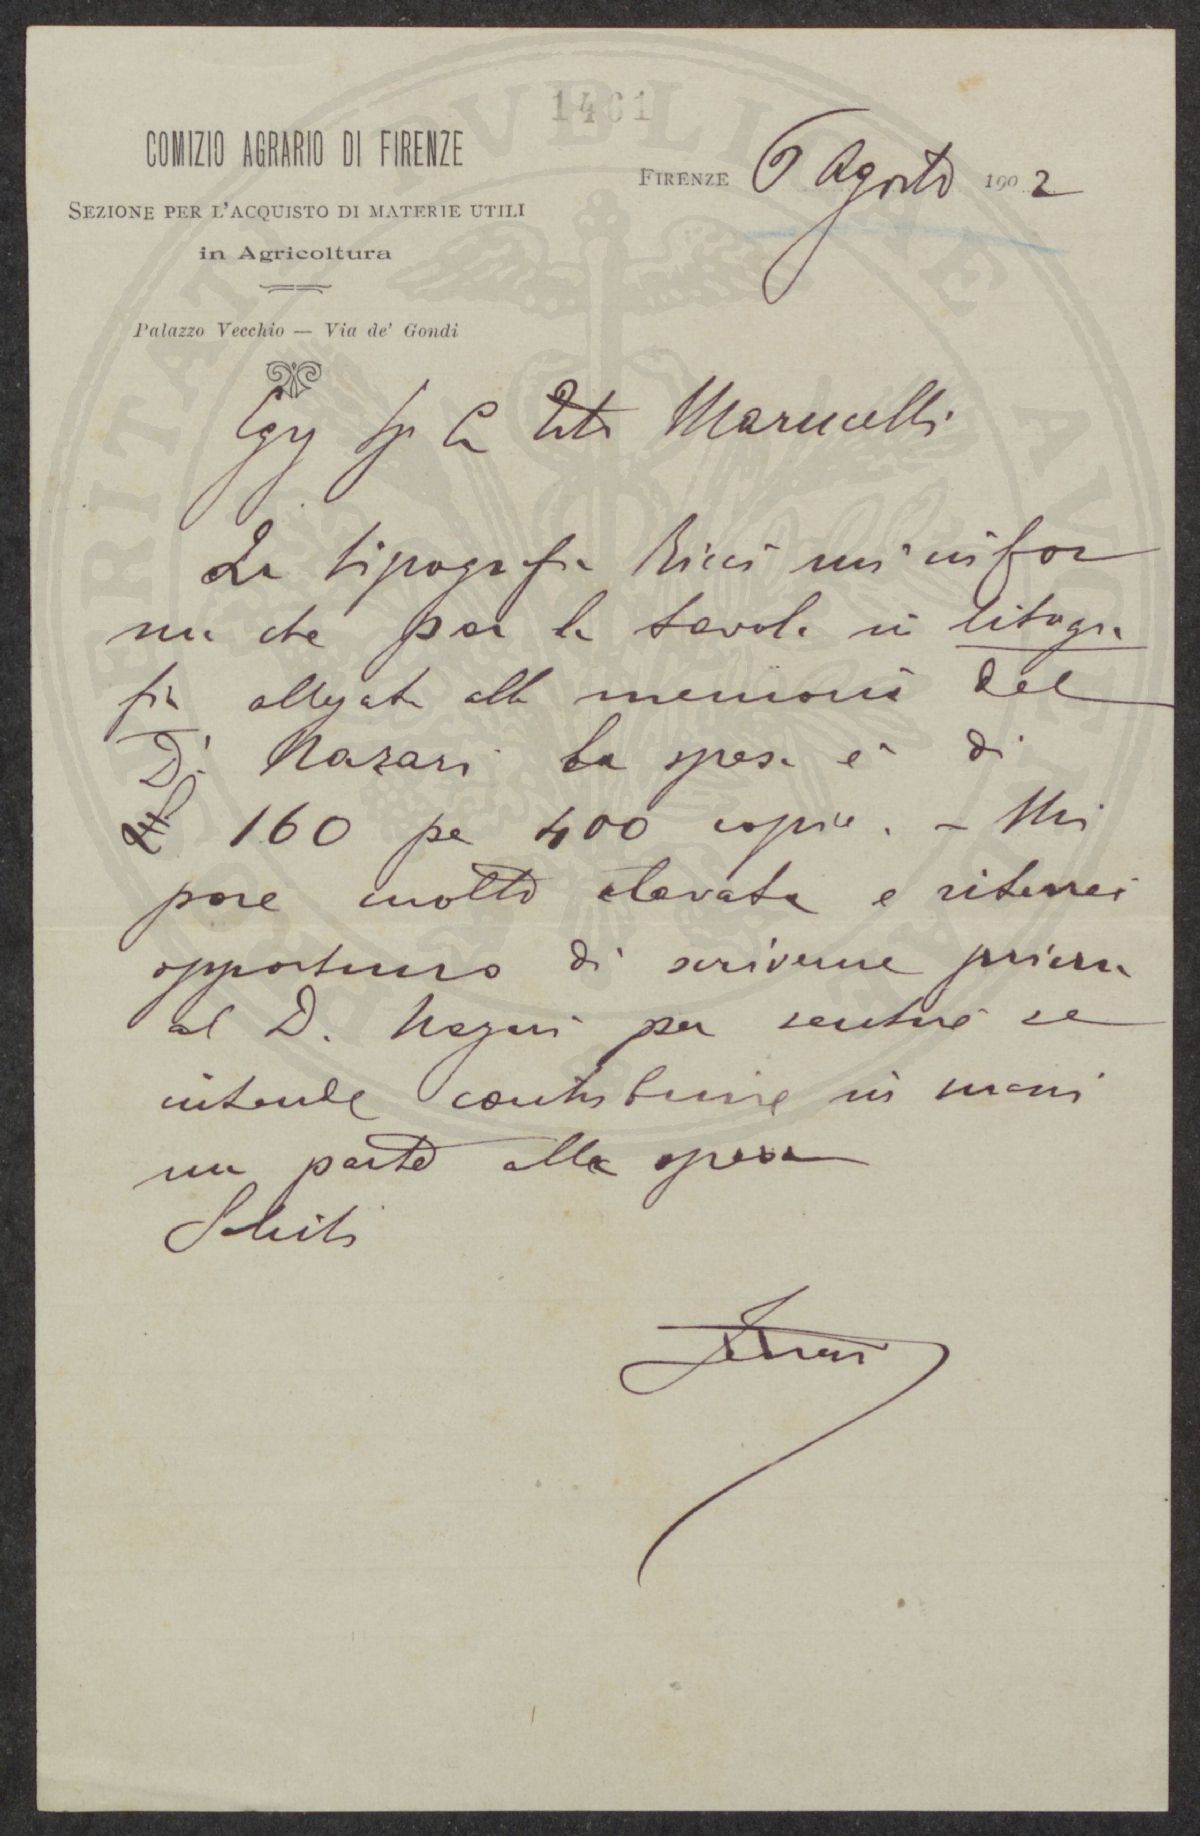 1461
COMIZIO AGRARIO DI FIRENZE
SEZIONE PER L'ACQUISTO DI MATERIE UTILI
in Agricoltura
Palazzo Vecchio — Via de' Gondi
FIRENZE 6 Agosto 1902
Egr Sr Marucelli
La tipografia Ricci mi infor
ma che per la tavola in litogra
fia allegata alla memoria del
Dr Nazari la spesa è di
160 per 400 copie. – Mi
pare molto elevata e riterrei
opportuno di scriverne prima
al D. Nazari per sentire se
intende contribuire in
una parte alla spesa
Saluti